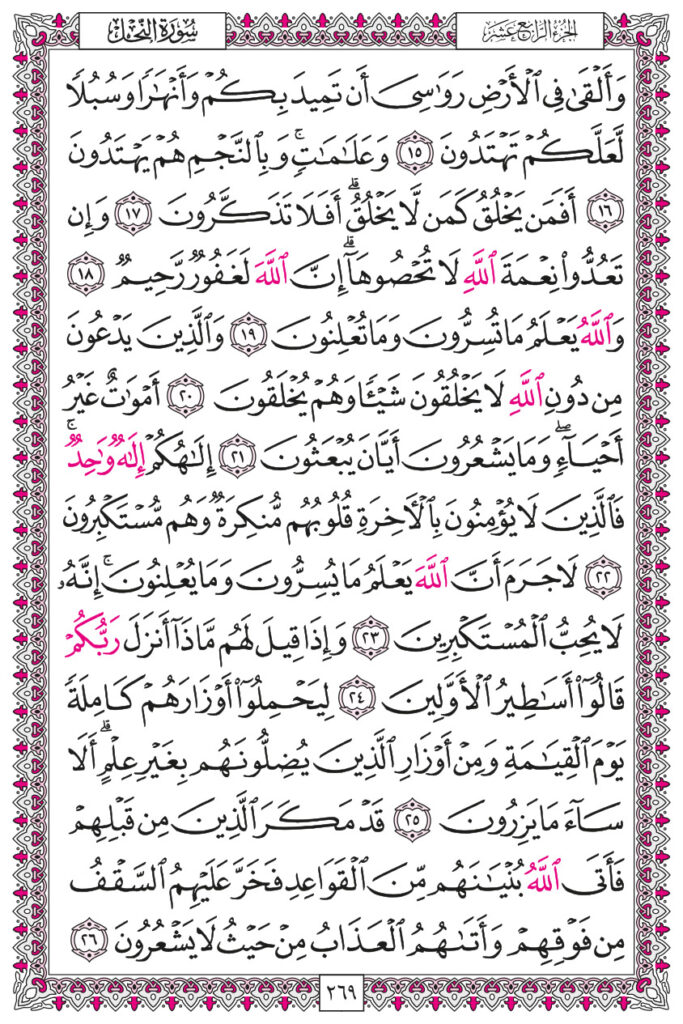 الجزء الرابع عشر
سورة النحل
وَأَلْقَىٰ فِي ٱلْأَرْضِ رَوَٰسِيَ أَن تَمِيدَ بِكُمْ وَأَنْهَٰرًا وَسُبُلًا
لَّعَلَّكُمْ تَهْتَدُونَ ١٥ وَعَلَٰمَٰتٍۚ وَبِٱلنَّجْمِ هُمْ يَهْتَدُونَ
١٦ أَفَمَن يَخْلُقُ كَمَن لَّا يَخْلُقُۗ أَفَلَا تَذَكَّرُونَ ١٧ وَإِن
تَعُدُّوا۟ نِعْمَةَ ٱللَّهِ لَا تُحْصُوهَآۗ إِنَّ ٱللَّهَ لَغَفُورٌ رَّحِيمٌ ١٨
وَٱللَّهُ يَعْلَمُ مَا تُسِرُّونَ وَمَا تُعْلِنُونَ ١٩ وَٱلَّذِينَ يَدْعُونَ
مِن دُونِ ٱللَّهِ لَا يَخْلُقُونَ شَيْـًٔا وَهُمْ يُخْلَقُونَ ٢٠ أَمْوَٰتٌ غَيْرُ
أَحْيَآءٍۖ وَمَا يَشْعُرُونَ أَيَّانَ يُبْعَثُونَ ٢١ إِلَٰهُكُمْ إِلَٰهٌ وَٰحِدٌۚ
فَٱلَّذِينَ لَا يُؤْمِنُونَ بِٱلْءَاخِرَةِ قُلُوبُهُم مُّنكِرَةٌ وَهُم مُّسْتَكْبِرُونَ
٢٢ لَا جَرَمَ أَنَّ ٱللَّهَ يَعْلَمُ مَا يُسِرُّونَ وَمَا يُعْلِنُونَۚ إِنَّهُۥ
لَا يُحِبُّ ٱلْمُسْتَكْبِرِينَ ٢٣ وَإِذَا قِيلَ لَهُم مَّاذَآ أَنزَلَ رَبُّكُمْ
قَالُوٓا۟ أَسَٰطِيرُ ٱلْأَوَّلِينَ ٢٤ لِيَحْمِلُوٓا۟ أَوْزَارَهُمْ كَامِلَةً
يَوْمَ ٱلْقِيَٰمَةِ وَمِنْ أَوْزَارِ ٱلَّذِينَ يُضِلُّونَهُم بِغَيْرِ عِلْمٍۗ أَلَا
سَآءَ مَا يَزِرُونَ ٢٥ قَدْ مَكَرَ ٱلَّذِينَ مِن قَبْلِهِمْ
فَأَتَى ٱللَّهُ بُنْيَٰنَهُم مِّنَ ٱلْقَوَاعِدِ فَخَرَّ عَلَيْهِمُ ٱلسَّقْفُ
مِن فَوْقِهِمْ وَأَتَىٰهُمُ ٱلْعَذَابُ مِنْ حَيْثُ لَا يَشْعُرُونَ ٢٦
٢٦٩